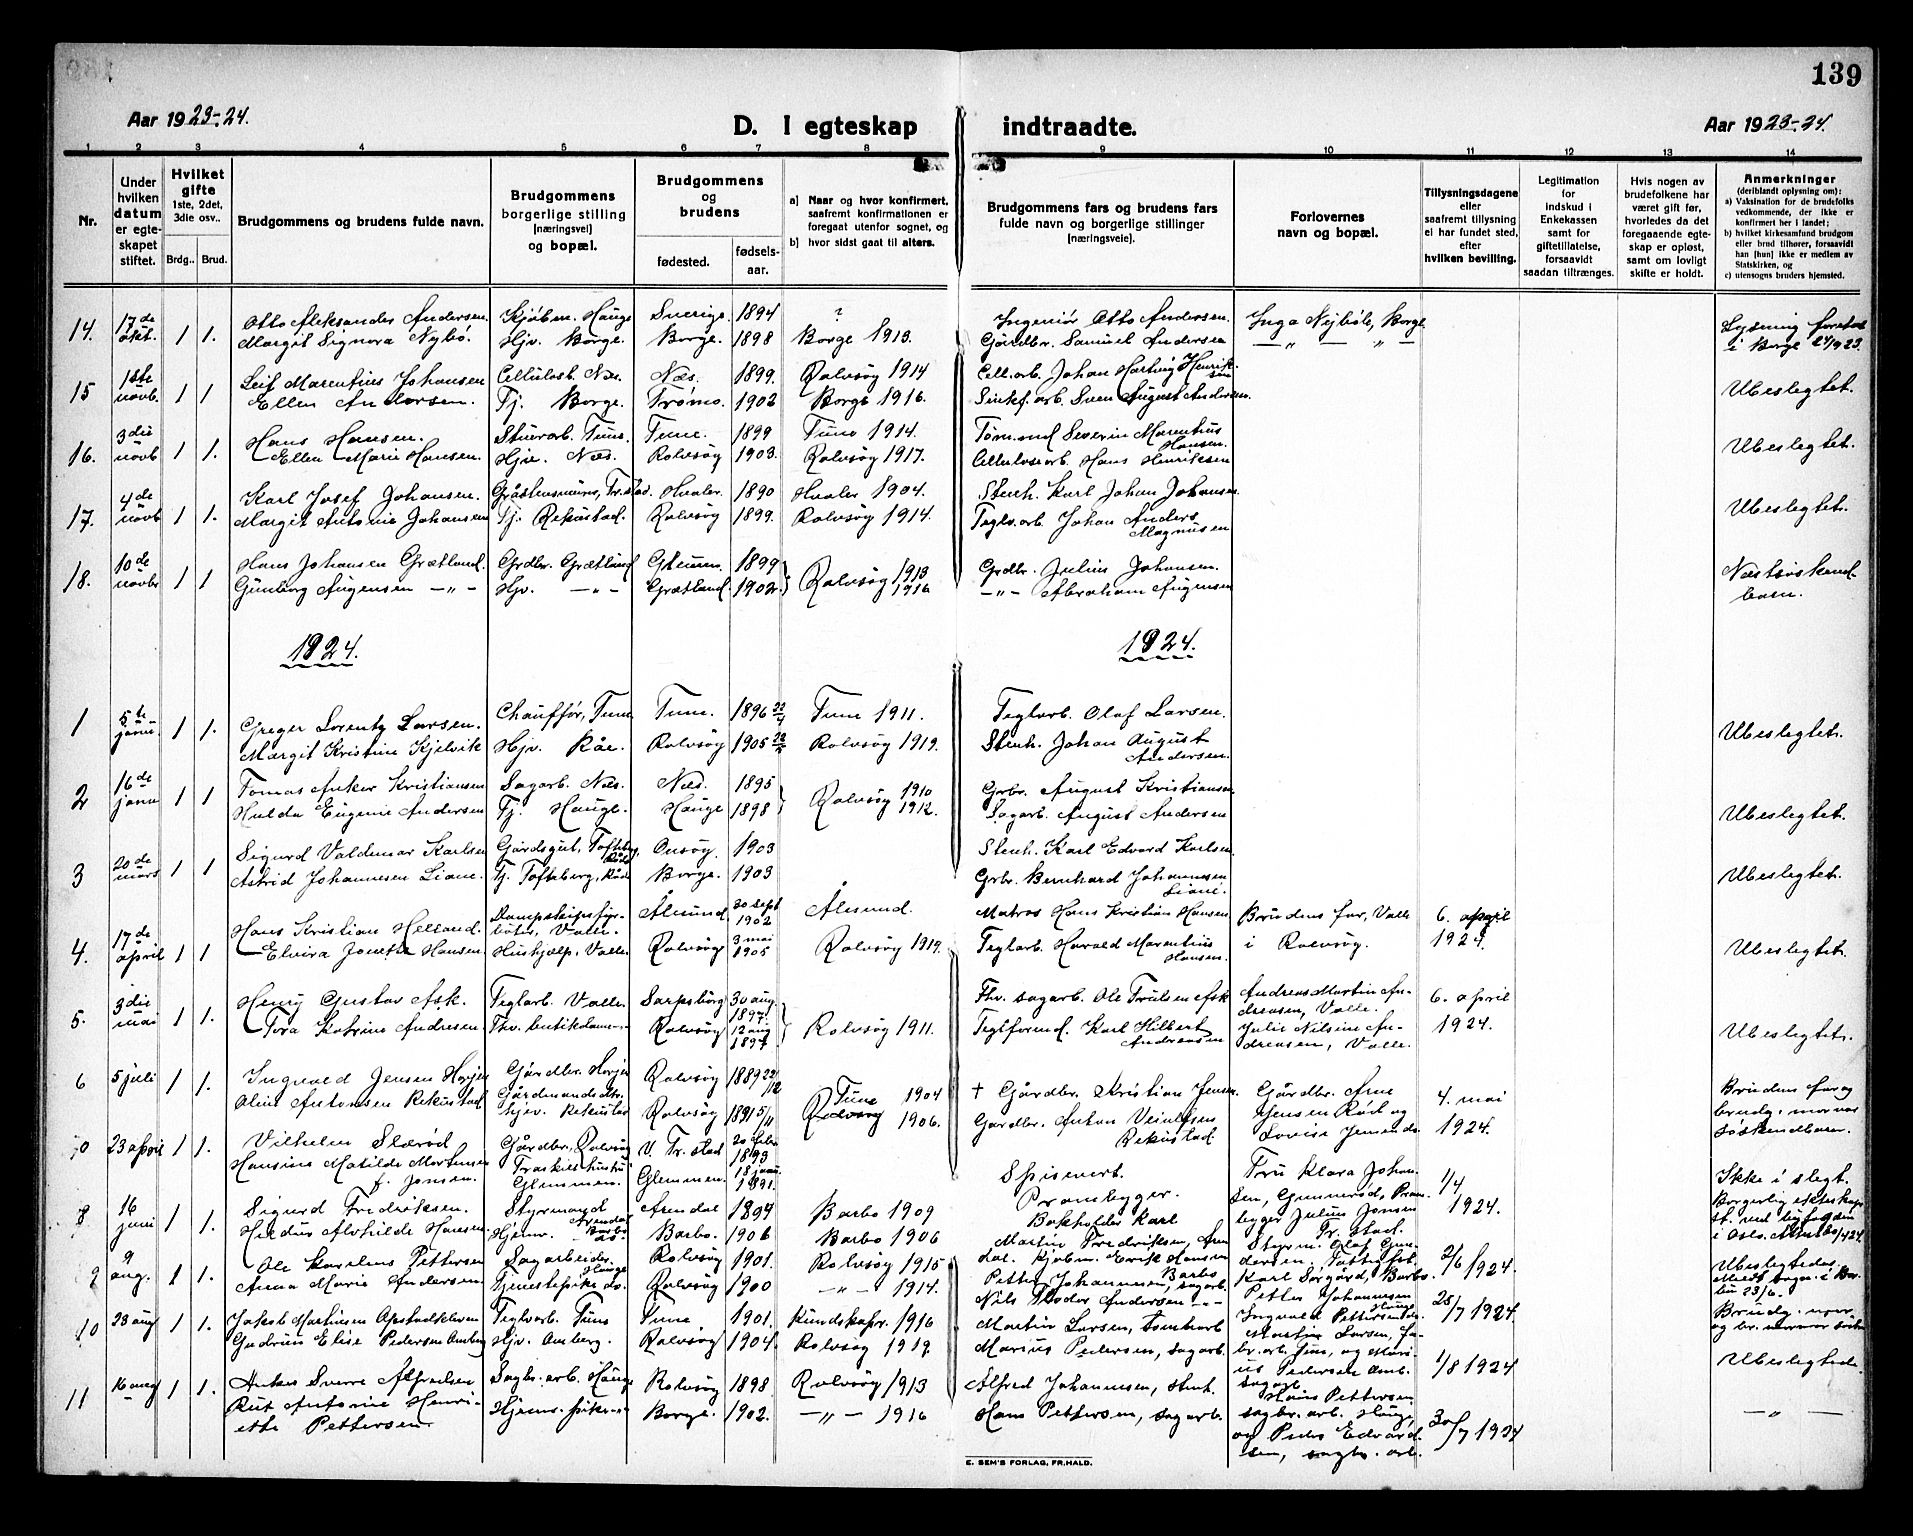 139
Aar 1923-24.
D. I egteskap indtraadte.
Aar 1923-24.
1 2 3 4 5 6 7 8 9 10 11 12 13 14
Nr.
Under hvilken datum er egteskapet stiftet.
Hvilket gifte 1ste, 2det, 3die osv..
Brdg.. Brud.
Brudgommens og brudens fulde navn.
Brudgommens borgerlige stilling (næringsvei) og bopæl.
Brudgommens og brudens
fødested.
fødselsaar.
a) Naar og hvor konfirmert, saafremt konfirmationen er foregaat utenfor sognet, og
b) hvor sidst gaat til alters.
Brudgommens fars og brudens fars fulde navn og borgerlige stillinger (næringsveie).
Forlovernes navn og bopæl.
Tillysningsdagene eller saafremt tillysning ei har fundet sted, efter hvilken bevilling.
Legitimation for indskud i Enkekassen samt for giftetillatelse, forsaavidt saadan tiltrænges.
Hvis nogen av brudefolkene har været gift før, hvorledes da det foregaaende egteskap er opløst, samt om lovligt skifte er holdt.
Anmerkninger (deriblandt oplysning om):
a) Vaksination for de brudefolks vedkommende, der ikke er konfirmert her i landet;
b) hvilket kirkesamfund brudgom eller brud tilhører, forsaavidt han [hun] ikke er medlem av Statskirken, og
c) utensogns bruders hjemsted.
14. 17de okt. 1 1. Otto Aleksander Andersen Kjøbm. Hauge Sverige 1894 ? Ingeniør Otto Andersen Inga Nybøle, Borge Lysning foretat
Margit Signora Nybø. Hjv. Borge. Borge. 1898 Borge 1913. Gårdbr. Samuel Andersen — „ — „ — i Borge 24/9 23.
15 1ste novb. 1 1 Leif Marentius Johansen Cellulosb. Næs. Næs. 1899. Rolvsøy 1914 Cell.arb. Johan Hartvig Henriksen Ubeslegtet.
Ellen Andersen. Tj. Borge. Tromø. 1902 Borge 1916. Sinkf.arb. Sven August Andersen.
16. 3die novb 1 1. Hans Hansen. Stuerarb. Tune. Tune. 1899 Tune 1914. Tøm.md Severin Marenthius Hansen. Ubeslegtet.
Ellen Marie Hansen. Hjv. Næs. Rolvsøy 1903. Rolvsøy 1917. Celluloserarb. Hans Henriksen
17. 4de novb 1 1. Karl Josef Johansen. Gråstensmurer, Fr.stad. Hvaler. 1890 Hvaler 1904. Stenh. Karl Johan Johansen Ubeslegtet.
Margit Antonie Johansen Tj. Rekustad. Rolvsøy 1899. Rolvsøy 1914. Teglv.arb. Johan Anders Magnusen
18. 10de novbr 1 1 Hans Johansen Grætland. Grdbr. Grætland Glemm. 1899 Rolvsøy 1913 Grdbr. Julius Johansen. Næstsøskend-
Gunborg Augensen — „ — Hjv. — „ — Grætland. 1902. 1916 — „ — Abraham Augensen barn.
1924. 1924.
1 5te janu. 1 1. Greger Lorentz Larsen. Chauffør, Tune Tune. 1896 Tune 1911. Teglarb. Olaf Larsen. Ubeslegtet.
Margit Kristine Kjelvik Hjv. Råe. Rolvsøy 1905 Rolvsøy 1919. Stenh. Johan August Andersen.
2 16de janu 1 1 Tomas Anker Kristiansen Sagarb. Næs. Næs. 1895 Rolvsøy 1910 Grbr. August Kristiansen Ubeslegtet.
Hulda Eugenie Andersen Tj. Hauge. Hauge 1898 1912. Sagarb. August Andersen
3 20de mars 1 1 Sigurd Valdemar Karlsen Gårdsgut, Tofteberg, Råde Onsøy. 1903 Stenh. Karl Edvard Karlsen. Ubeslegtet.
Astrid Johannesen Liane Tj. Tofteberg, Råde Borge. 1903 Grbr. Bernhard Johannesen Liane.
4. 17de april 1 1 Hans Kristian Helland. Dampskipsfyrbøter, Valle. Ålesund 20 sept 1902 Ålesund. Matros Hans Kristian Hansen Brudens far, Valle 6. april Ubeslegtet.
Elvira Jonette Hansen Hushjelp, Valle. Rolvsøy 3 mai 1905 Rolvsøy 1919. Teglarb. Harald Marentius Hansen. i Rolvsøy. 1924.
5. 3die mai 1 1. Henry Gustav Ask. Teglarb. Valle. Sarpsborg 30 aug. 1897. Rolvsøy 1911. Fhv. sagarb. Ole Trulsen Ask Andreas Martin Andresen, Valle. 6. april Ubeslegtet.
Tora Katrine Andresen Fhv. butikdame — „ — Rolvsøy 12 aug 1897 Teglformd. Karl Hilbert Andresen Julie Nilsine Andresen, Valle. 1924.
6 5 juli 1 1. Ingvald Jensen Hovjen Gårdbr. Hovjen Rolvsøy 1889 22/12 Tune 1904 † Gårdbr. Kristian Jensen Gårdbr. Arne 4. mai Brudens far og
Oline Antonsen Rekustad Gårdmandsdtr. hjv. Rekustad Rolvsøy 1891 Rolvsøy 1906. Gårdbr. Anton Rekustad. Jensen Rød og Lovise Jensen do 1924. brudg. mor var søskendbarn.
23 april 1 1. Vilhelm Slærød Gårdbr. Rolvsøy V. Fr.stad 20 febr 1893 Spisevert. Fru Klara Johan- 1/4 Ikke i slegt.
Hansine Matilde Mortensen f. Jonsen. Glemmen. Glemmen. 18 janu. 1891. Prambygger. sen, Gunnerød, Prambygger Julius Jonsen Fr. stad. 1924. Borgerlig ekteskap
8 16 juni 1 1. Sigurd Fredriksen. Styrmand Arendal Arendal 1894 Barbo 1909 Bokholder Karl Martin Fredriksen, Aren-
Herdis Alvhilde Hansen. Hjemv. Barbo Barbo. 1906 Barbo 1906 dal. Kjøbm. Erik Hansen Barbo Styrm. Olaf Gundersen, Karl Sørgård, Barbo. 2/6 1924. Ubeslegtede.
9 9 aug. 1 1. Ole Karelius Pettersen Sagarbeider Hauge Rolvsøy 1901. Rolvsøy 1915 Petter Johannesen, sagarb. Petter Johannesen Hauge 25/7 1924.
Anna Marie Andersen. Tjenestepike do. Rolvsøy 1900 — „ — 1914. Nils Teodor Andersen — „ — Ingvald Pettersen do.
10 23 aug 1 1. Jakob Martinsen Opstadkleven Teglvarb. Tune Tune 1901. Kundskapr. 1916 Martin Larsen, tomtearb Martin Larsen, fabr.arb. Tune, og Marius Pedersen Amb. sagarb 1/8 1924 Brudg. mor
Gudrun Elise Pedersen Amberg Hjv. Amberg. Rolvsøy 1904. Rolvsøy 1919. Marius Pedersen, sagarb. og br. mormor
11 16 aug 1 1. Anker Sverre Alfredsen Sagbr. arb. Hauge Rolvsøy 1898 Rolvsøy 1913 Alfred Johannesen, stenh. Hans Pettersen sagbr. arb. Hauge 30/7 1924 Ubeslegtede
Rut Antonie Henriette Pettersen Hjemv. pike — „ — Borge. 1902. — „ — 1916 Hans Pettersen, sagarb. og Peder Edvardsen, sagbr. arb. — „ —
E. SEM'S FORLAG, FR.HALD.